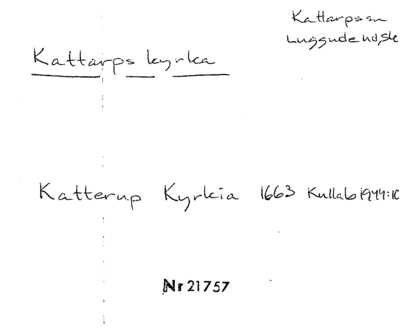 Kattarps sn
Luggude hd Sk
Kattarps kyrka
Katterup Kyrkia 1663 Kullab 1944:10
Nr 21757